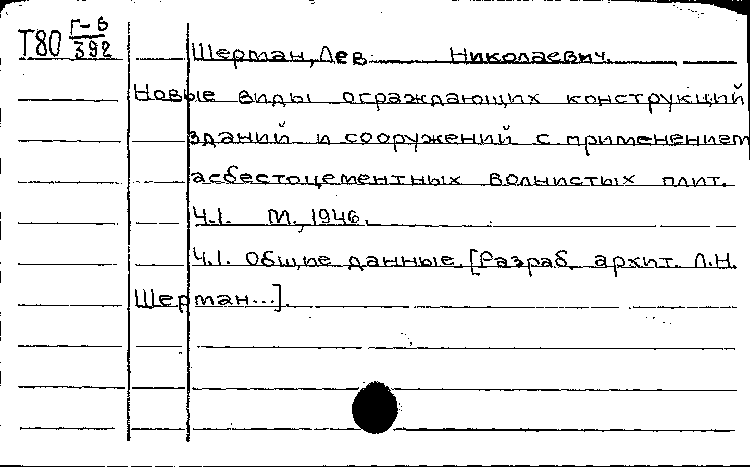 Т80 Г-6/392
Шерман, Лев Николаевич.
Новые виды ограждающих конструкций
зданий и сооружений с применением
асбестоцементных волнистых плит.
Ч.1. М., 1946.
Ч.1. Общие данные. [Разраб. архит. Л.Н.
Шерман...].